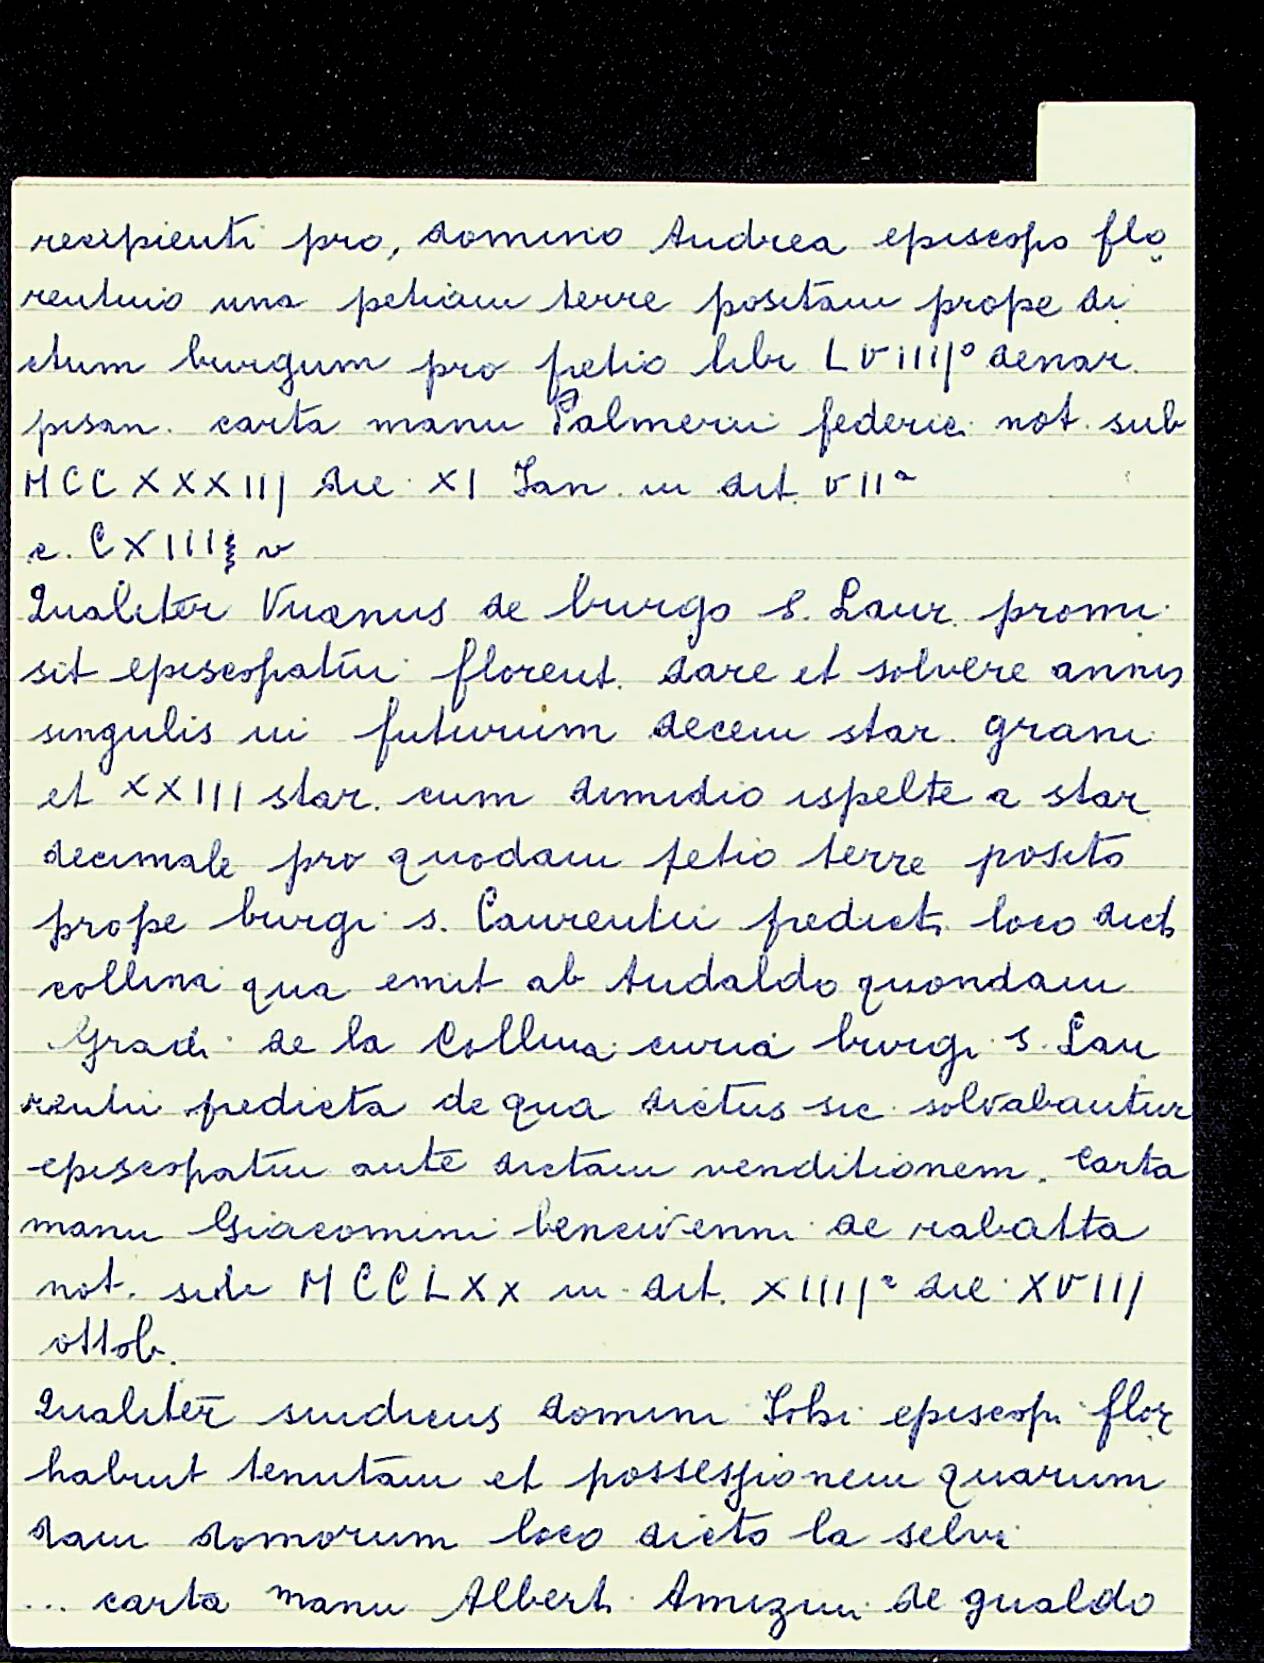 recipienti pro, domino Andrea episcopo flo
rentino una petiam terre positam prope di
ctum burgum pro pretio libr LVIIIIº denar.
pisan. carta manu Palmerii federici not. sub
MCCXXXIII die XI Ian. in dit. VIIª
c. CXIIII v
Qualiter Vuenus de burgo S. Laur. promi
sit episcopatui florent. dare et solvere annis
singulis in futurum decem star. grani
et XXIII star. cum dimidio ispelte a star
decimale pro quodam petio terre posito
prope burgi s. Laurentii predicti loco dict
collina qua emit ab Andaldo quondam
Gradi de la Collina curia burgi S. Lau
rentii predicta de qua dictus sic solvabantur
episcopatui ante dictam venditionem. Carta
manu Giacomini bencivenni de rabatta
not. sub MCCLXX in dit. XIIIIª die XVIII
ottob.
Qualiter sindicus domini Iohi episcopi flor
habuit tenutam et possessionem quarum
dam domorum loco dicto la selva
... carta manu Alberti Amizini de gualdo